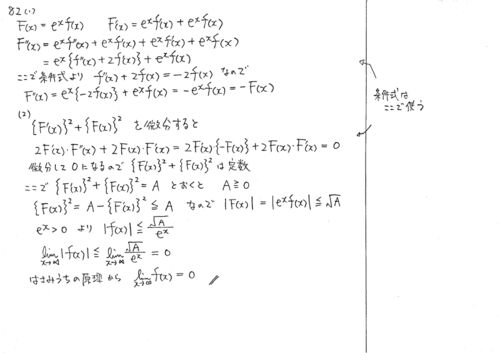 82(1)
F(x)=e^x f(x)　F'(x)=e^x f(x)+e^x f'(x)
F''(x)=e^x f''(x)+e^x f'(x)+e^x f'(x)+e^x f(x)
=e^x{f''(x)+2f'(x)}+e^x f(x)
ここで条件式より f''(x)+2f'(x)=-2f(x) なので
F''(x)=e^x{-2f(x)}+e^x f(x)=-e^x f(x)=-F(x)
条件式は
ここで使う
(2)
{F'(x)}²+{F(x)}² を微分すると
2F'(x)・F''(x)+2F(x)・F'(x)=2F'(x){-F(x)}+2F(x)・F'(x)=0
微分して0になるので {F'(x)}²+{F(x)}² は定数
ここで {F'(x)}²+{F(x)}²=A とおくと A≧0
{F(x)}²=A-{F'(x)}²≦A なので |F(x)|=|e^x f(x)|≦√A
e^x>0 より |f(x)|≦√A/e^x
lim x→∞ |f(x)|≦lim x→∞ √A/e^x=0
はさみうちの原理から lim x→∞ f(x)=0 //